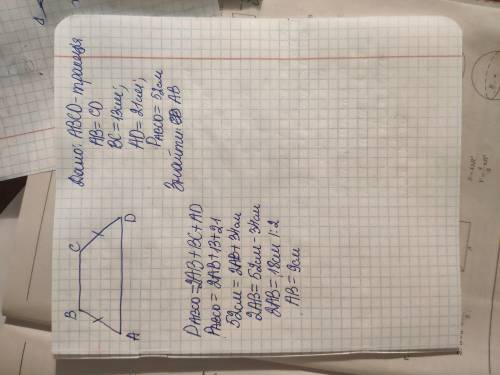 Дано: ABCD - трапеція
AB = CD
BC = 13см;
AD = 21см;
PABCD = 52см
Знайти: AB
B
C
A
D
PABCD = 2AB + BC + AD
PABCD = 2AB + 13 + 21
52см = 2AB + 34см
2AB = 52см - 34см
2AB = 18см |:2
AB = 9см